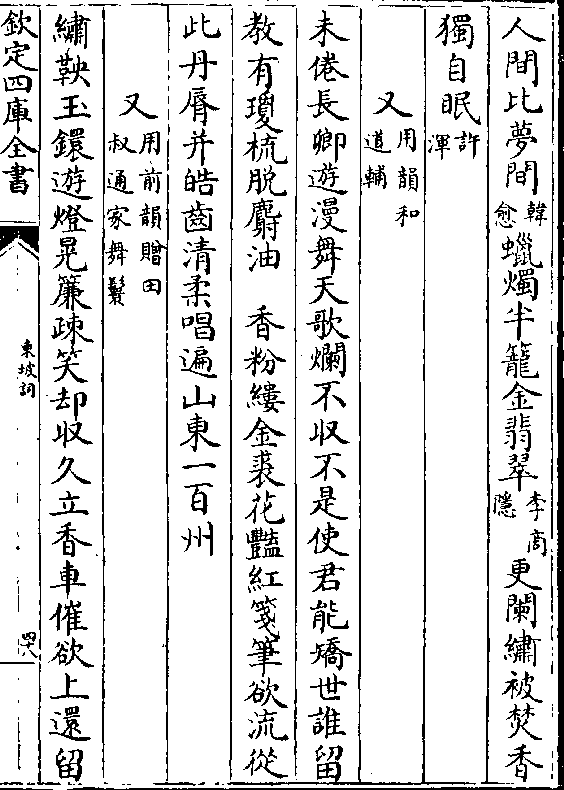 人間比夢間韓愈蠟燭半籠金翡翠李商隱更闌繡被焚香
獨自眠許渾
又用韻和道輔
未倦長卿遊漫舞夭歌爛不収不是使君能矯世誰留
教有瓊梳脫麝油　香粉縷金裘花豔紅箋筆欲流從
此丹脣幷皓齒清柔唱遍山東一百州
又用前韻贈田叔通家舞鬟
繡鞅玉鐶遊燈晃簾疎笑却収久立香車催欲上還留
欽定四庫全書
東坡詞
四六